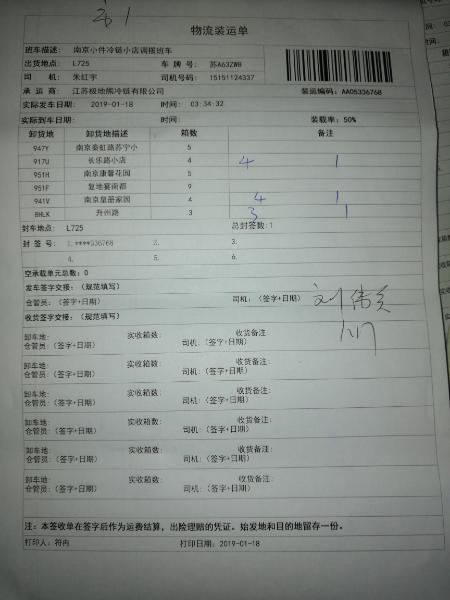 物流装运单
班车描述: 南京小件冷链小店调拨班车
出货地点: L725 车 牌 号: 苏A63ZWB
司 机: 朱红宇 司机号码: 15151124337
承 运 商: 江苏极地熊冷链有限公司 装运编码: AA05336768
实际发车日期: 2019-01-18 时间: 03:34:32
实际到车日期: 时间: 装载率: 50%
卸货地 卸货地描述 箱数 备注
947Y 南京秦虹路苏宁小 5
917U 长乐路小店 4 4 1
951H 南京康馨花园 5
951F 复地宴南都 9
941V 南京皇册家园 4 4 1
8HLK 升州路 3 3 1
封车地点: L725 总封签数:1
封 签 号: 1.****936768 2. 3.
4. 5. 6.
空承载单元总数: 0
发车签字交接: (规范填写)
仓管员: (签字+日期) 司机: (签字+日期)
收货签字交接: (规范填写)
卸车地: 实收箱数: 收货备注:
仓管员: (签字+日期) 司机: (签字+日期)
卸车地: 实收箱数: 收货备注:
仓管员: (签字+日期) 司机: (签字+日期)
卸车地: 实收箱数: 收货备注:
仓管员: (签字+日期) 司机: (签字+日期)
卸车地: 实收箱数: 收货备注:
仓管员: (签字+日期) 司机: (签字+日期)
卸车地: 实收箱数: 收货备注:
仓管员: (签字+日期) 司机: (签字+日期)
卸车地: 实收箱数: 收货备注:
仓管员: (签字+日期) 司机: (签字+日期)
注: 本签收单在签字后作为运费结算, 出险理赔的凭证。始发地和目的地留存一份。
打印人: 符冉 打印日期: 2019-01-18